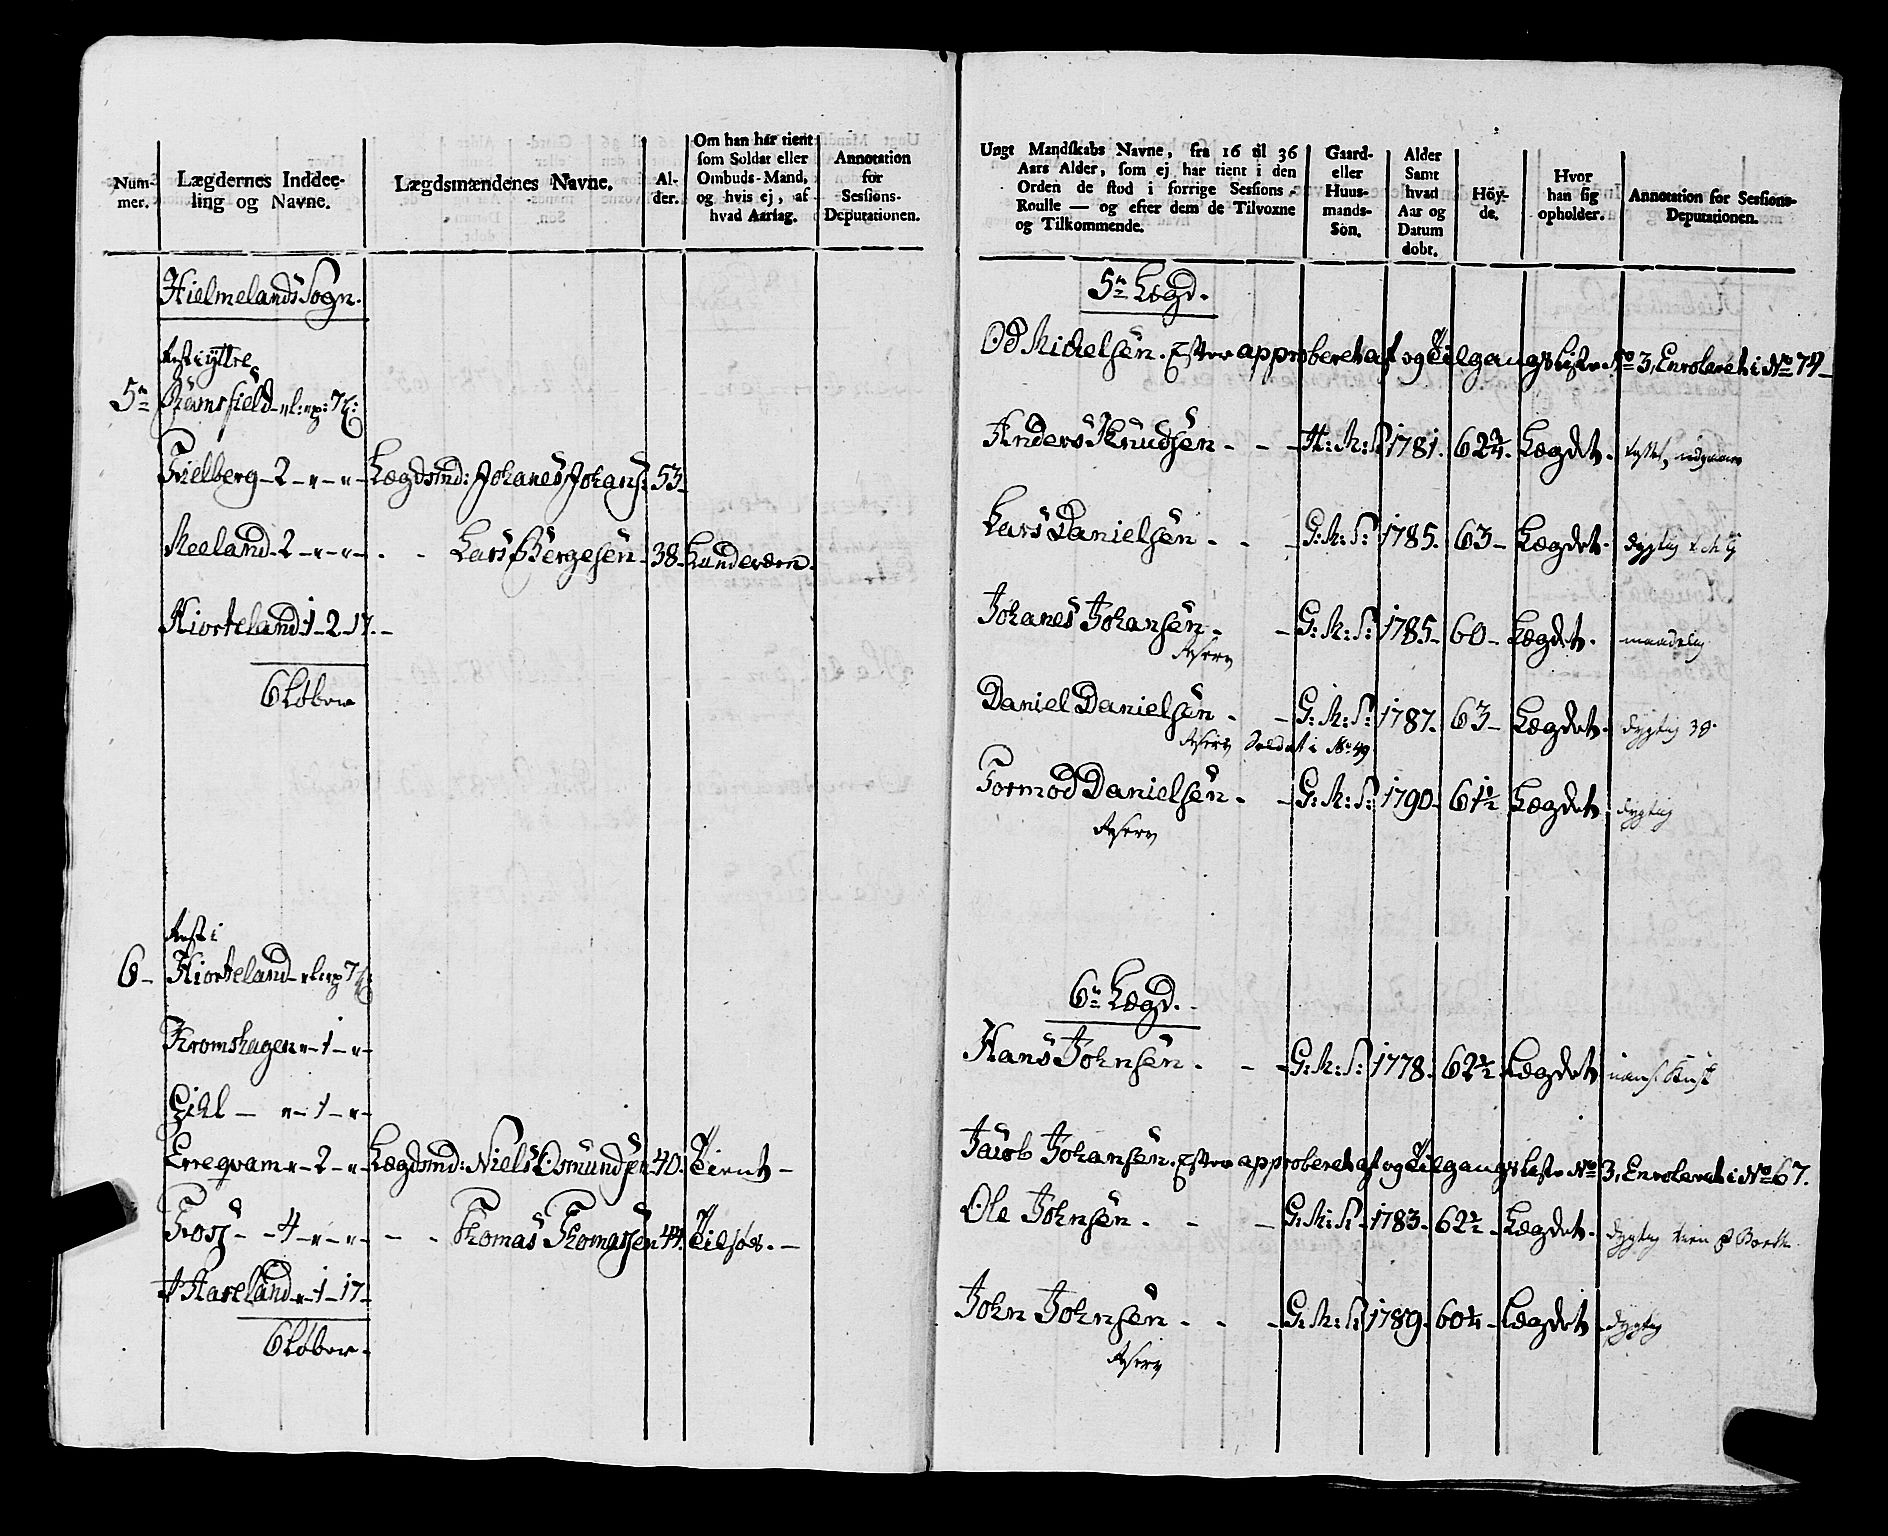 Num-
mer.
Lægdernes Inddee-
ling og Navne.
Lægdsmændenes Navne.
Al-
der.
Om han har tient
som Soldat eller
Ombuds-Mand,
og hvis ej, af
hvad Aarsag.
Annotation
for
Sessions-
Deputationen.
Hielmelands Sogn.
Rest i yttre
5te Ramsfield
Fielberg - 2 - " - " - Lægdsmd: Johanes Johans: 53 -
Meeland - 2 - " - " - Lars Børgesen - 38 -
Hiorteland 1 - 2 - 17 -
6 Løber
Rest i
6 - Hiorteland
Kromshagen " - 1 - " -
- " - 1 - " -
Erreqvam " - 2 - " - Lægdsmd: Niels Osmundsen - 40. Tient -
- 4 - " - " - Thomas Thomassen 44.
Hareland " - 1 - 17 -
6 Løber.
Ungt Mandskabs Navne, fra 16 til 36
Aars Alder, som ej har tient i den
Orden de stod i forrige Sessions-
Roulle — og efter dem de Tilvoxne
og Tilkommende.
Gaard-
eller
Huus-
mands-
Søn.
Alder
Samt
hvad
Aar og
Datum
dobt.
Höy-
de.
Hvor
han sig
opholder.
Annotation for Sessions-
Deputationen.
5te Lægd.
Od Michelsen. Efter approberet af og Tilgangs Liste No 3, Enroleret i No 74 -
Anders Knudsen - - - H: M: S: 1781. 62 3/4. Lægdet.
Lars Danielsen - - - G: M: S: 1785. 63 - Lægdet. dygtig
Johanes Johansen - - G: M: S: 1785 - 60 - Lægdet. maadelig
Reserv
Daniel Danielsen - - G: M: S: 1787. 63 - Lægdet. dygtig
Reserv Soldat i No 49
Tormod Danielsen - - G: M: S: 1790 - 61 1/2 Lægdet. dygtig
Reserv
6te Lægd.
Hans Johnsen - - - G: M: S: 1778. 62 1/2 Lægdet
Jacob Johansen. Efter approberet af og Tilgangs Liste No 3, Enroleret i No 67.
Ole Johnsen - - - G: M: S: 1783. 62 1/2 - Lægdet. dygtig
John Johnsen - - - G: M: S: 1789. 60 1/4 - Lægdet - dygtig
Reserv